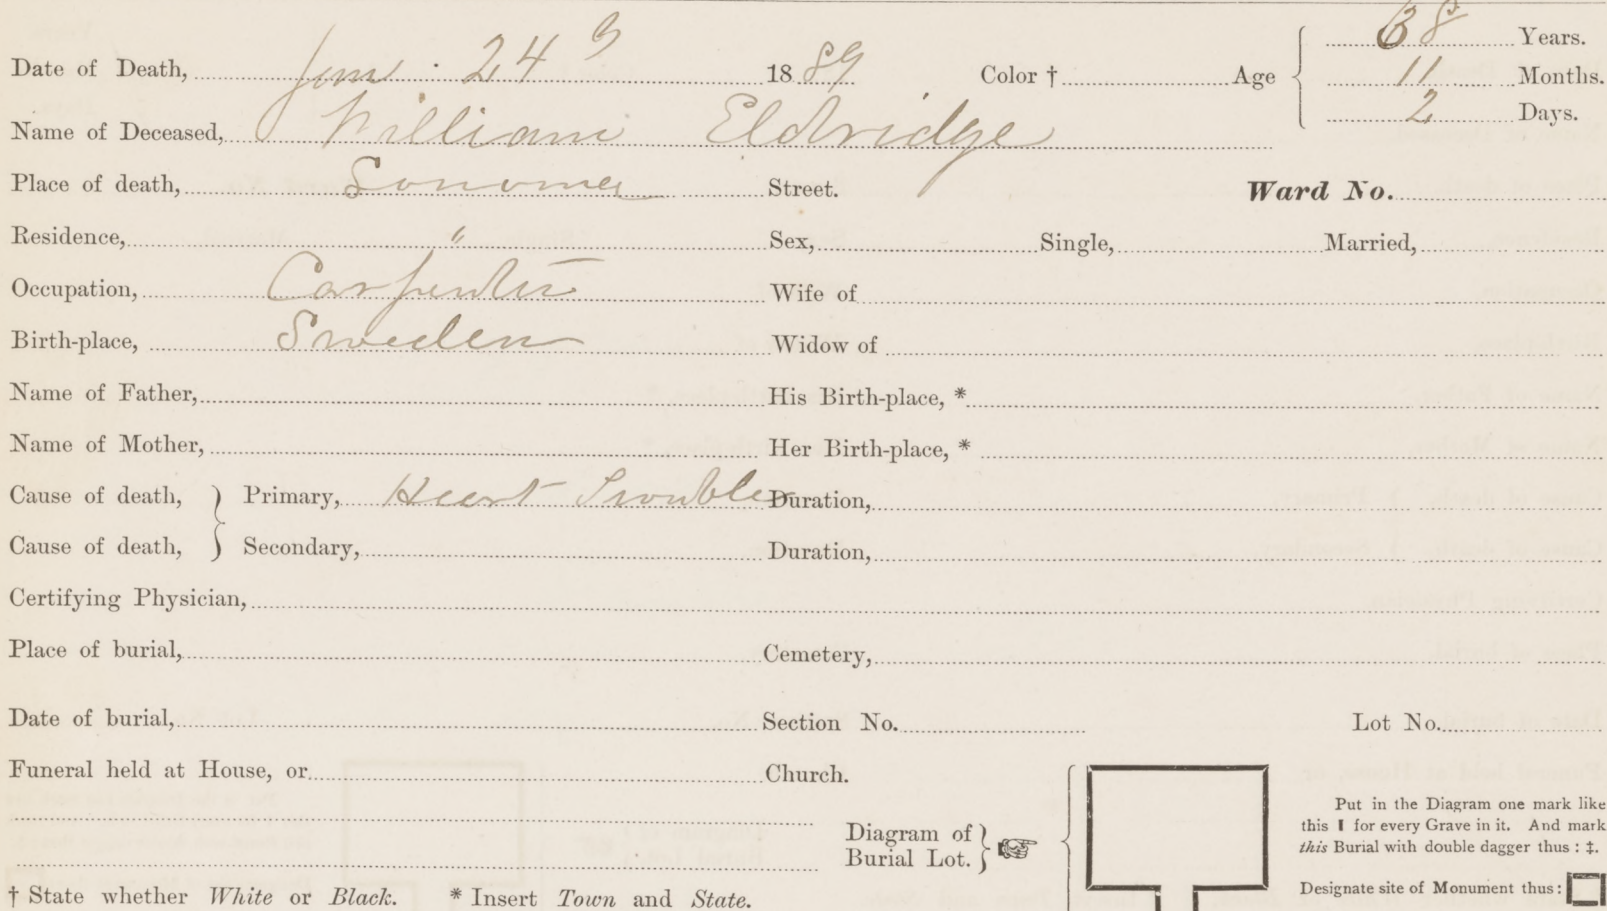 Date of Death, Jan. 24 1889 Color † Age 68 Years.
11 Months.
2 Days.
Name of Deceased, William Eldridge
Place of death, Sonoma Street. Ward No.
Residence, " Sex, Single, Married,
Occupation, Carpenter Wife of
Birth-place, Sweden Widow of
Name of Father, His Birth-place, *
Name of Mother, Her Birth-place, *
Cause of death, } Primary, Heart Trouble Duration,
Cause of death, } Secondary, Duration,
Certifying Physician,
Place of burial, Cemetery,
Date of burial, Section No. Lot No.
Funeral held at House, or Church.
Diagram of Burial Lot. }
Put in the Diagram one mark like
this I for every Grave in it. And mark
this Burial with double dagger thus : ‡.
Designate site of Monument thus :
† State whether White or Black. * Insert Town and State.